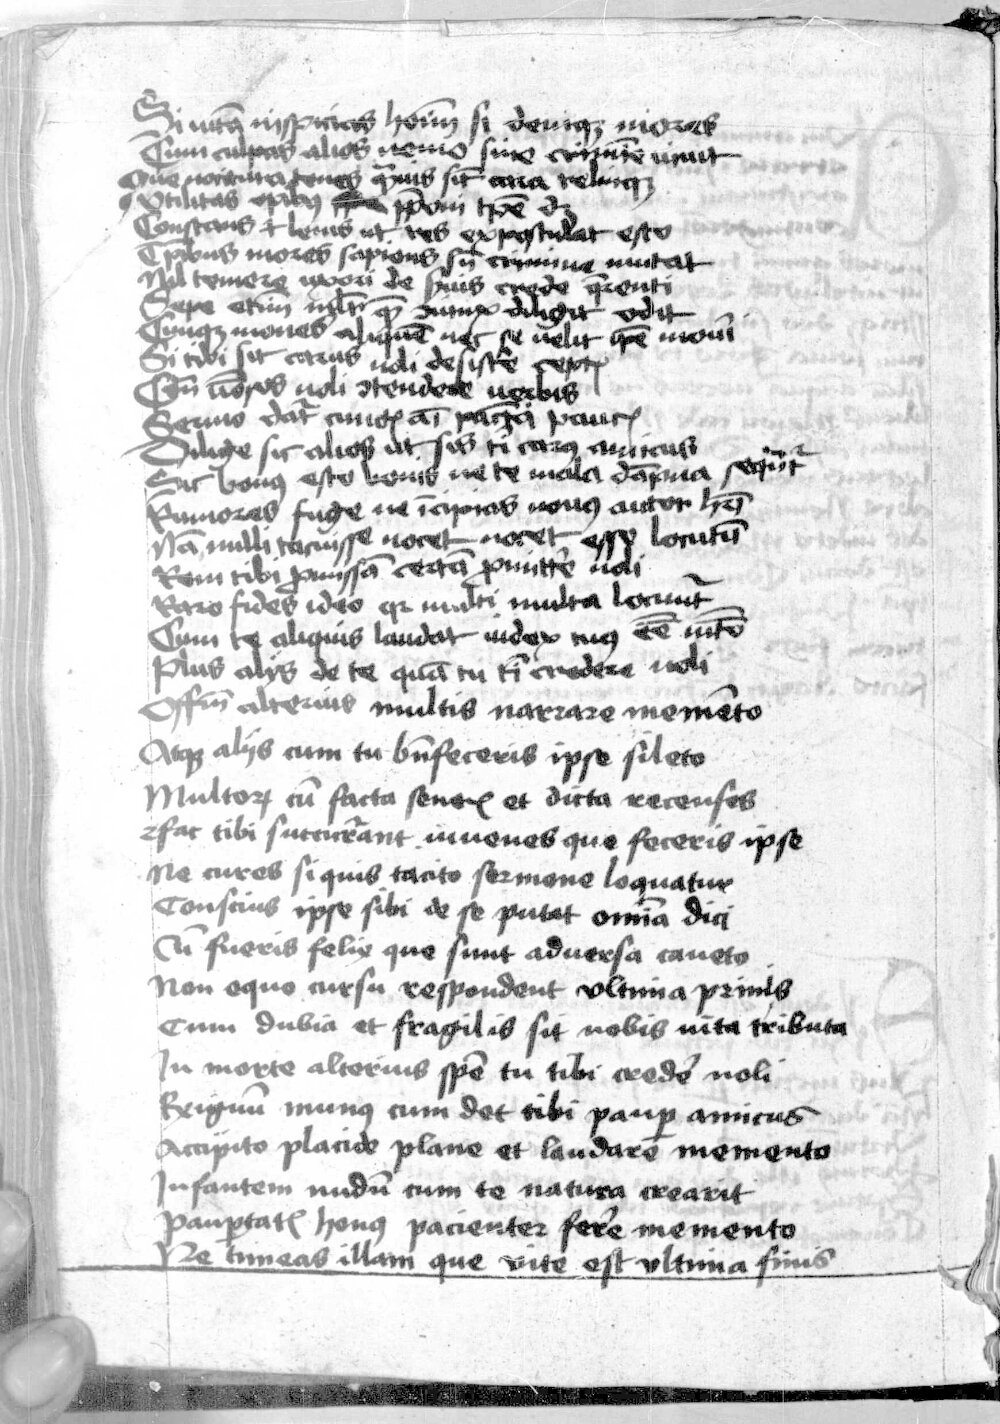 Si vitā inspicias hoīm si deniqꝫ mores
Cum culpas alios nemo sine crimīe vivit
Que nocitura tenes q̄mvis sīt cara relinqꝫ
Utilitas opibꝰ pp̄oni tp̄e dꝫ
Constans et lenis ut res expostulat esto
Tp̄ibus mores sapiens sn̄ crimine mutat
Nil temere uxori de servis crede q̄renti
Sepe etīm mlr̄ quē coniunx diligit odit
Cumqꝫ mones aliquē nec se velit ip̄e moneri
Si tibi sit carus noli desistē ceptꝭ
Cōn v̄bosos noli ɔtendere verbis
Sermo dat̄ cunctꝭ aī sapiēcia paucꝭ
Dilige sic alios ut sis tī carꝰ amicus
Sic bonꝰ esto bonis ne te mala dāpna seqūnt̄
Rumores fuge ne īcipias novꝰ autor hr̄i
Nā nulli tacuisse nocet nocet esse locutū
Rem tibi ꝓmissā certā ꝓmittē noli
Raro fides ideo qr multi multa locunt̄
Cum te aliquis laudat iudex tuꝰ eē mēto
Plus aliis de te quā tu tī credere noli
Offīm alterius multis narrare memēto
Atqꝫ aliis cum tu bn̄feceris ipse sileto
Multoꝝ cū facta senexꝭ et dicta recenses
fac tibi succurrant iuvenes que feceris ipse
Ne cures si quis tacito sermone loquatur
Conscius ipse sibi de se putat omīa dici
Cū fueris felix que sunt adversa caveto
Non equo cursu respondent ultima primis
Cum dubia et fragilis sit nobis vita tributa
In morte alterius spē tu tibi credē noli
Exiguū munꝰ cum det tibi pauꝑ amicus
Accipito placide plane et laudare memento
Infantem nudū cum te natura crearit
Pauꝑtatꝭ honꝰ pacienter ferē memento
Ne timeas illam que vite est ultima finis